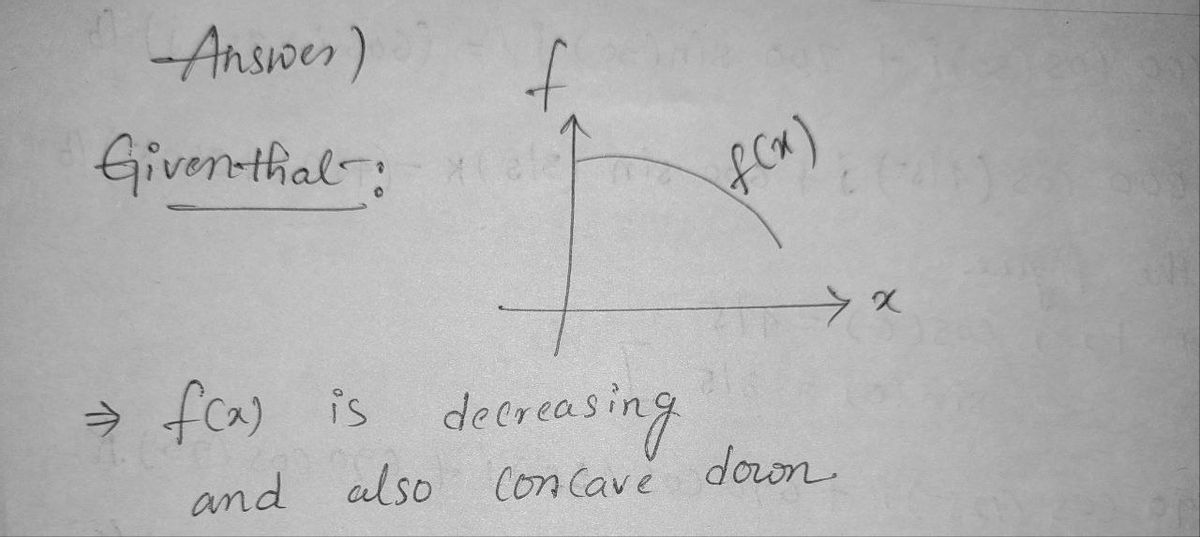 Answer)
f
Given that :
f(x)
x
⇒ f(x) is decreasing
and also concave down